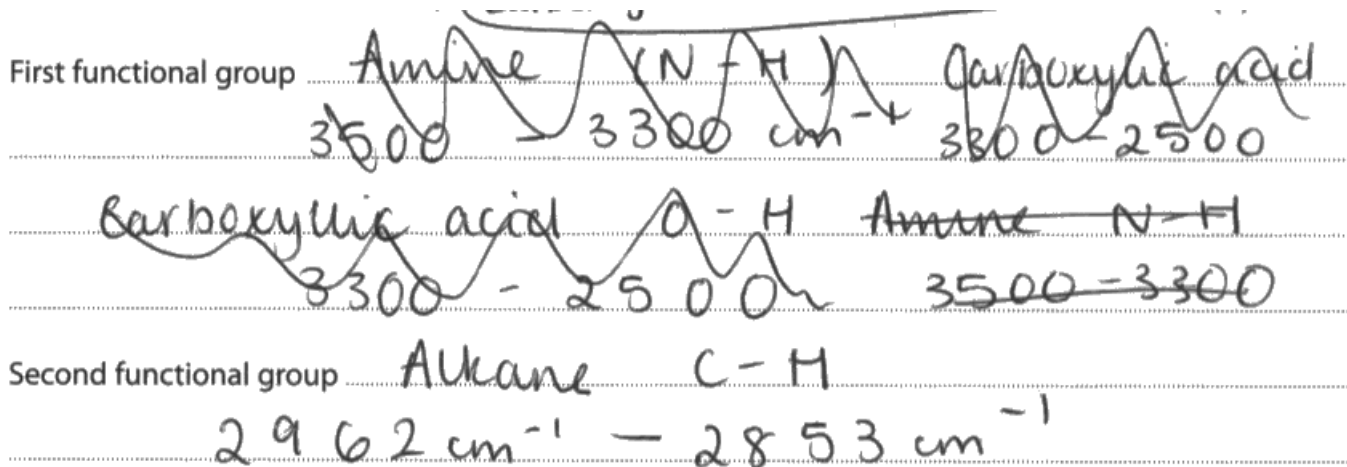 First functional group Amine (N-H) Carboxylic acid
3500 - 3300 cm⁻¹ 3300-2500
Carboxyllic acid O-H Amine N-H
3300 - 2500 3500-3300
Second functional group Alkane C-H
2962 cm⁻¹ - 2853 cm⁻¹